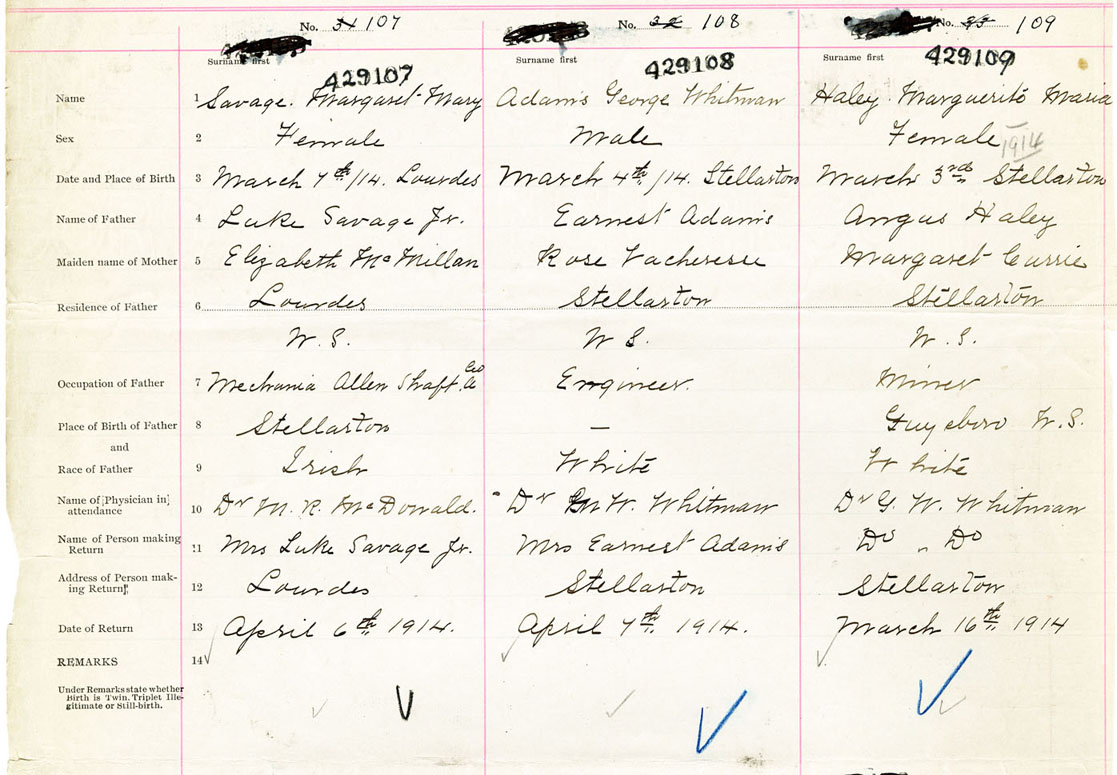 No. 31 107 No. 32 108 No. 33 109
Surname first Surname first Surname first
429107 429108 429109
Name 1 Savage. Margaret Mary Adams George Whitman Haley Marguerite Maria
Sex 2 Female Male Female 1914
Date and Place of Birth 3 March 7th/14. Lourdes March 4th/14. Stellarton March 3rd Stellarton
Name of Father 4 Luke Savage Jr. Earnest Adams Angus Haley
Maiden name of Mother 5 Elizabeth McMillan Rose Margaret Currie
Residence of Father 6 Lourdes Stellarton Stellarton
N.S. N S. N.S.
Occupation of Father 7 Allen Shaft. Engineer. Miner
Place of Birth of Father 8 Stellarton — Guysboro N.S.
and
Race of Father 9 Irish White White
Name of Physician in
attendance 10 Dr M. R. McDonald. Dr W. Whitman Dr G. W. Whitman
Name of Person making
Return 11 Mrs Luke Savage Jr. Mrs Earnest Adams Do " Do
Address of Person mak-
ing Return 12 Lourdes Stellarton Stellarton
Date of Return 13 April 6th 1914. April 7th. 1914. March 16th 1914
REMARKS 14
Under Remarks state whether
Birth is Twin, Triplet Ille-
gitimate or Still-birth.